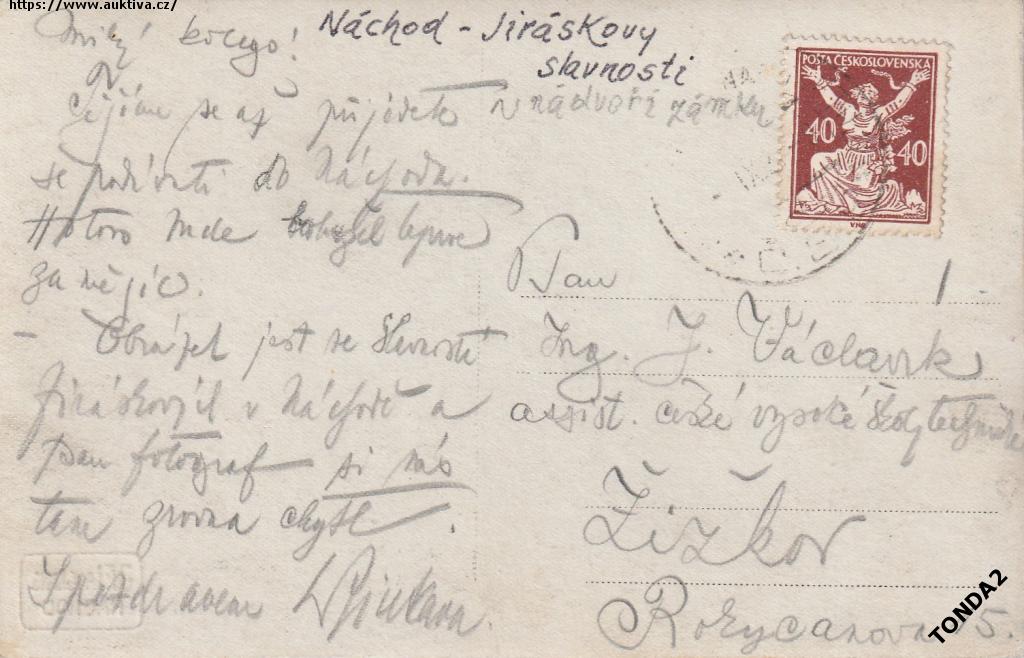 https://www.auktiva.cz/
Náchod - Jiráskovy
slavnosti
na nádvoří zámku
Milý kolego!
Těšíme se až přijedete
se podívati do Náchoda.
Hotovo bude bohužel teprve
za měsíc.
Obrázek jest se Slavností
Jiráskových v Náchodě a
Pan fotograf si nás
tam zrovna chytl.
S pozdravem
POŠTA ČESKOSLOVENSKÁ
40 40
Pan
Ing. J. Václavík
assist. české vysoké školy technické
Žižkov
Rokycanova 15.
TONDA2